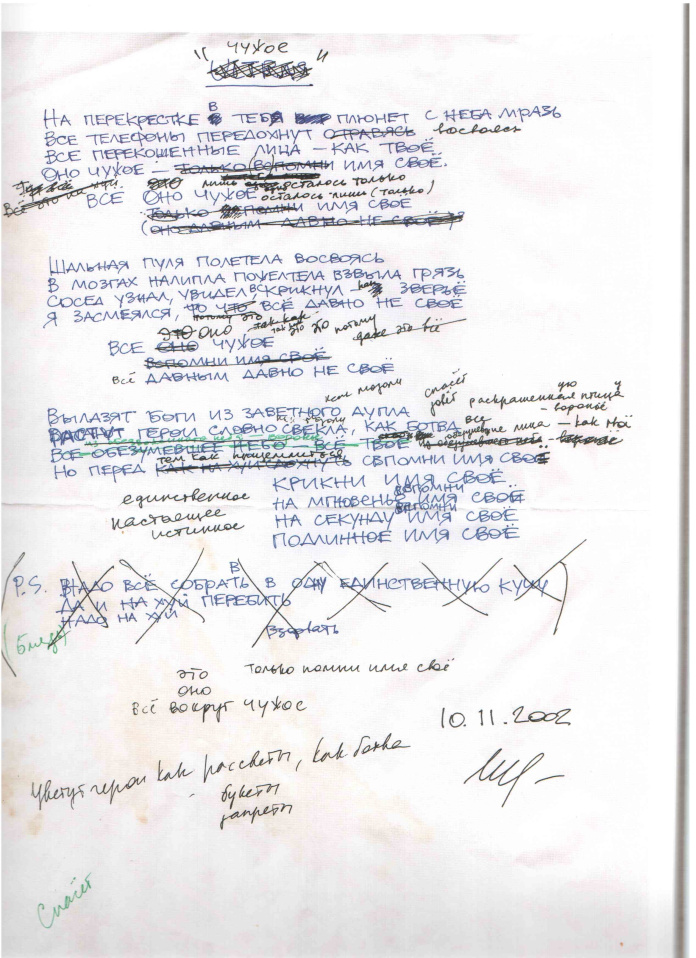 " ЧУЖОЕ "
НА ПЕРЕКРЕСТКЕ В ТЕБЯ ПЛЮНЕТ С НЕБА МРАЗЬ
ВСЕ ТЕЛЕФОНЫ ПЕРЕДОХНУТ ОТРАВЯСЬ восвояси
ВСЕ ПЕРЕКОШЕННЫЕ ЛИЦА – КАК ТВОЁ
ОНО ЧУЖОЕ – ТОЛЬКО ВСПОМНИ ИМЯ СВОЁ.
Всё это ЭТО лишь осталось только
ВСЕ ОНО ЧУЖОЕ осталось лишь (только)
ТОЛЬКО ВСПОМНИ ИМЯ СВОЁ
(ОНО ДАВНЫМ ДАВНО НЕ СВОЁ)
ШАЛЬНАЯ ПУЛЯ ПОЛЕТЕЛА ВОСВОЯСЬ
В МОЗГАХ НАЛИПЛА ПОЖЕЛТЕЛА ВЗВЫЛА ГРЯЗЬ
СОСЕД УЗНАЛ, УВИДЕЛ ВСКРИКНУЛ как ЗВЕРЬЁ
Я ЗАСМЕЯЛСЯ, ТО ЧТО ВСЁ ДАВНО НЕ СВОЁ
потому это
ЭТО ОНО так как так это это потому даже это всё
ВСЕ ОНО ЧУЖОЕ
ВСПОМНИ ИМЯ СВОЁ
Всё ДАВНЫМ ДАВНО НЕ СВОЁ
как мозоли спасёт ую у
зовёт раскрашенная птица
ВЫЛАЗЯТ БОГИ ИЗ ЗАВЕТНОГО ДУПЛА – вороньё
РАСТУТ ГЕРОИ СЛОВНО СВЕКЛА, КАК БОТВА
ВСЕ ОБЕЗУМЕВШЕЕ НЕБО – ВСЁ ТВОЁ все обезумевшие лица – как моё
НО ПЕРЕД тем как ВСПОМНИ ИМЯ СВОЁ
КРИКНИ ИМЯ СВОЁ
единственное НА МГНОВЕНЬЕ вспомни ИМЯ СВОЁ
настаещее НА СЕКУНДУ вспомни ИМЯ СВОЁ
истинное ПОДЛИННОЕ ИМЯ СВОЁ
P.S. НАДО ВСЁ СОБРАТЬ В ОДНУ ЕДИНСТВЕННУЮ КУЧУ
ДА И НА ХУЙ ПЕРЕБИТЬ
НАДО НА ХУЙ
Взорвать
только помни имя своё
это
оно
Всё вокруг чужое
10.11.2002
Цветут герои как рассветы, как ботва
букеты
запреты
Спасёт